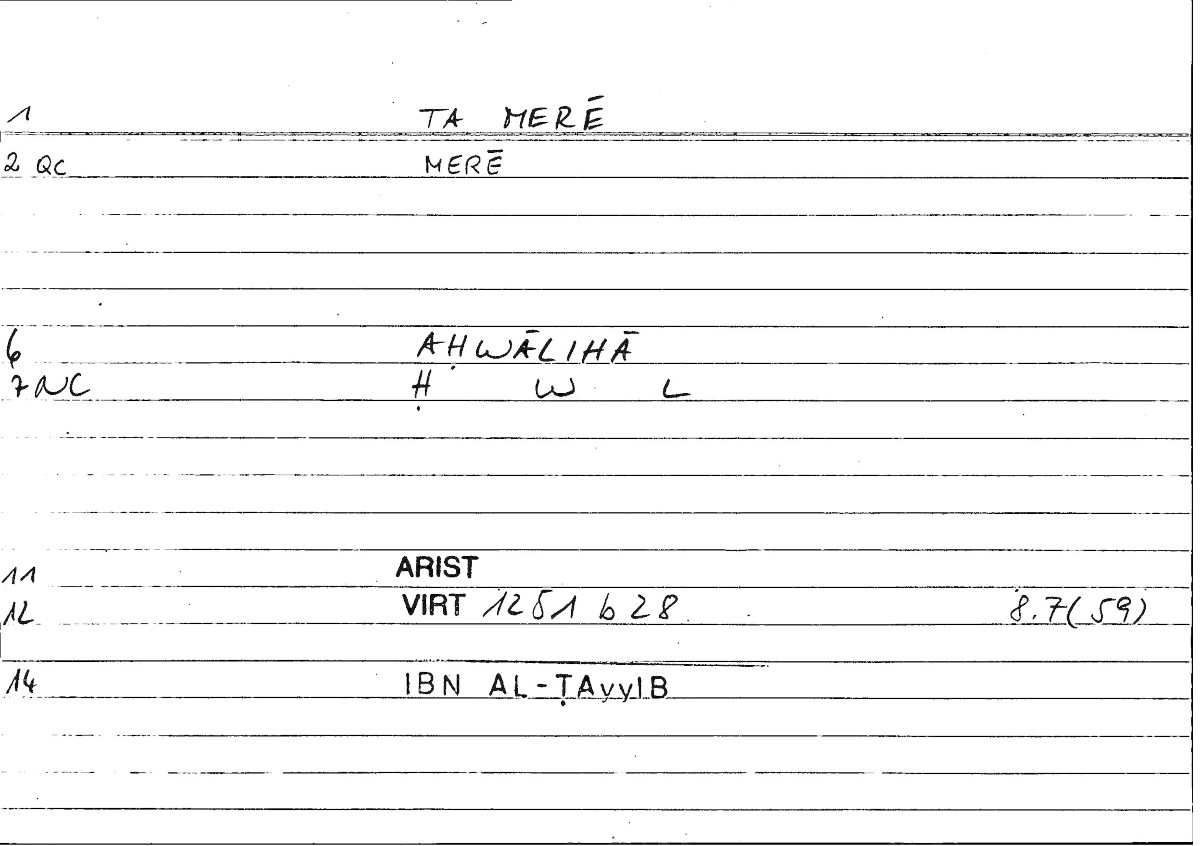 1 TA MERĒ
2 QC MERĒ
6 AḤWĀLIHĀ
7 NC Ḥ W L
11 ARIST
12 VIRT 1251 b 28 8.7(59)
14 IBN AL-ṬAyyIB